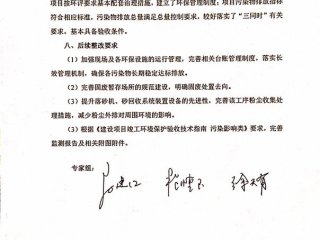 项目按环评要求基本配套治理措施，建立了环保管理制度。项目污染物排放指标
符合相应标准，污染物排放总量满足总量控制要求，较好落实了“三同时”有关
要求，基本具备验收条件。
八、后续整改要求
（1）加强现场及各环保设施的运行管理，完善相关台账管理制度，落实长
效管理机制，确保各污染物长期稳定达标排放。
（2）完善固废暂存场所的规范建设，明确固废处置去向。
（3）提升落砂机、砂回收系统装置设备的先进性，完善该工序粉尘收集处
理措施，减少粉尘外排对周围环境的影响。
（4）根据《建设项目竣工环境保护验收技术指南 污染影响类》要求，完善
监测报告及相关附图附件。
专家组：